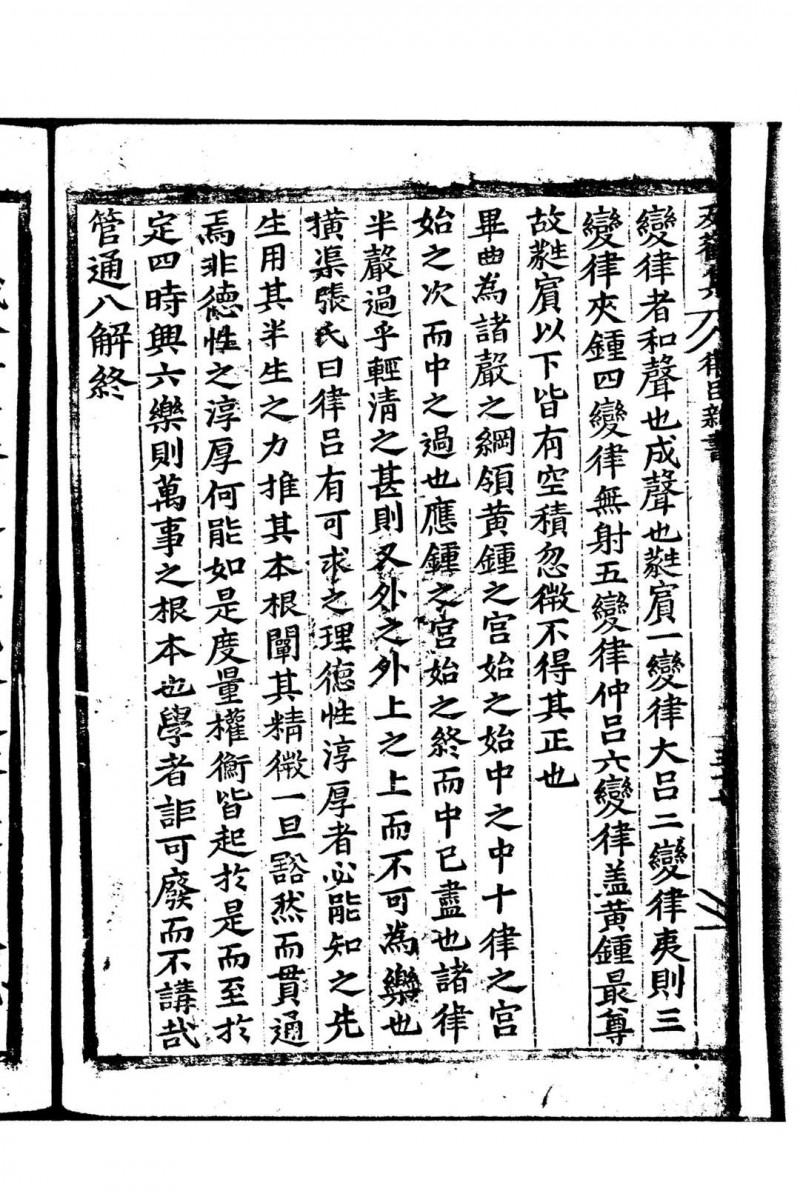 律呂新書
變律者和聲也成聲也蕤賓一變律大呂二變律夷則三
變律夾鍾四變律無射五變律仲呂六變律盖黃鍾最尊
故蕤賓以下皆有空積忽微不得其正也
畢曲為諸聲之綱領黃鍾之宮始之始中之中十律之宮
始之次而中之過也應鍾之宮始之終而中已盡也諸律
半聲過乎輕清之甚則又外之外上之上而不可為樂也
橫渠張氏曰律呂有可求之理德性淳厚者必能知之先
生用其半生之力推其本根闡其精微一旦豁然而貫通
焉非德性之淳厚何能如是度量權衡皆起於是而至於
定四時興六樂則萬事之根本也學者詎可廢而不講哉
管通八解終